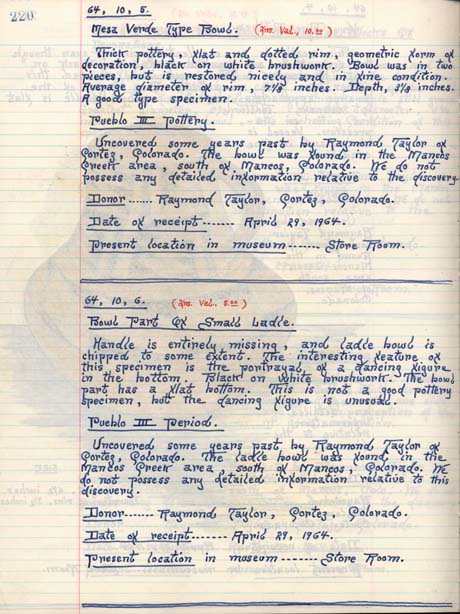 220
64, 10, 5.
Mesa Verde Type Bowl. (Ins. Val., 10.00)
Thick pottery, flat and dotted rim, geometric form of
decoration, black on white brushwork. Bowl was in two
pieces, but is restored nicely and in fine condition.
Average diameter of rim, 7 1/8 inches. Depth, 3 1/8 inches.
A good type specimen.
Pueblo III Pottery.
Uncovered some years past by Raymond Taylor of
Cortez, Colorado. The bowl was found in the Mancos
Creek area, south of Mancos, Colorado. We do not
possess any detailed information relative to the discovery.
Donor...... Raymond Taylor, Cortez, Colorado.
Date of receipt------- April 29, 1964.
Present location in museum------- Store Room.
64, 10, 6. (Ins. Val. 5.00)
Bowl Part Of Small Ladle.
Handle is entirely missing, and ladle bowl is
chipped to some extent. The interesting feature of
this specimen is the portrayal of a dancing figure
in the bottom, Black on white brushwork. The bowl
part has a flat bottom. This is not a good pottery
specimen, but the dancing figure is unusual.
Pueblo III Period.
Uncovered some years past, by Raymond, Taylor of
Cortez, Colorado. The ladle bowl was found in the
Mancos Creek area, south of Mancos, Colorado. We
do not possess any detailed information relative to this
discovery.
Donor...... Raymond Taylor, Cortez, Colorado.
Date of receipt------- April 29, 1964.
Present location in museum ------- Store Room.